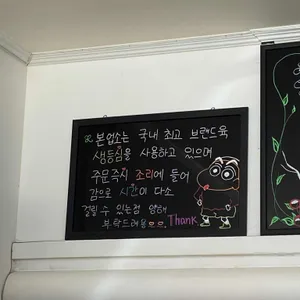 본업소는 국내 최고 브랜드육
생등심을 사용하고 있으며
주문즉시 조리에 들어
감으로 시간이 다소
걸릴 수 있는점 양해
부탁드려용ㅁㅁ. Thank